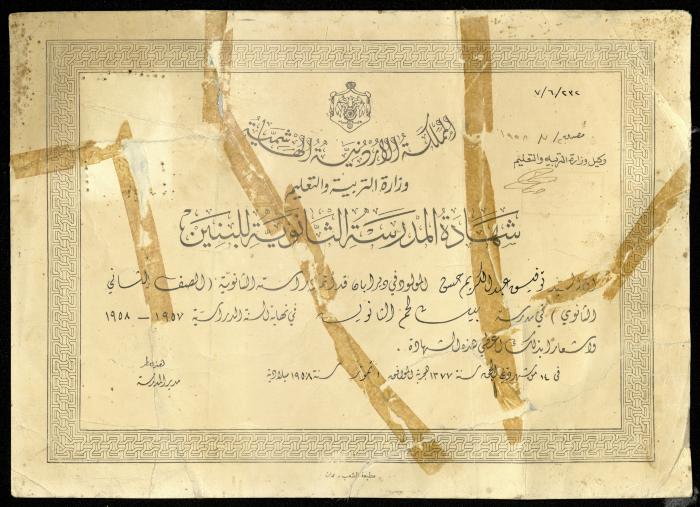 ٧/٦/٢٣٢
المملكة الأردنية الهاشمية
مصدق
١٩٥٨
وكيل وزارة التربية والتعليم
وزارة التربية والتعليم
شهادة المدرسة الثانوية للبنين
إن السيد توفيق عبد الكريم حسن المولود في ديرابان قد أتم دراسته الثانوية (الصف الثاني
الثانوي) في مدرسة بيت لحم الثانوية في نهاية السنة الدراسية ١٩٥٧ - ١٩٥٨
وإشعارا بذلك أعطي هذه الشهادة .
في ١٤ من شهر ذي الحجة سنة ١٣٧٧ هجرية الموافق تموز سنة ١٩٥٨ ميلادية
مدير المدرسة
مطبعة الشعب - عمان